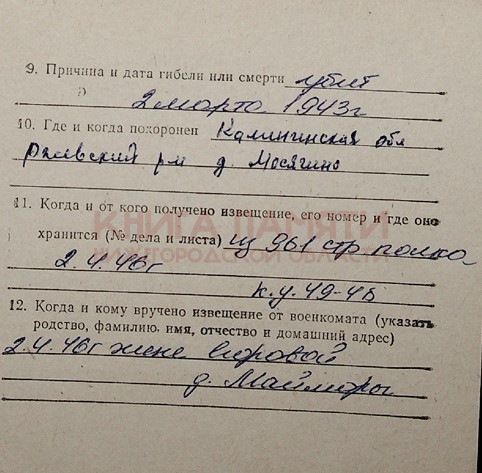 9. Причина и дата гибели или смерти убит
2 марта 1943г
10. Где и когда похоронен Калининская обл
Ржевский р-н д. Мосягино
11. Когда и от кого получено извещение, его номер и где оно
КНИГА ПАМЯТИ
хранится (№ дела и листа) из 961 стр. полка
НИЖЕГОРОДСКОЙ ОБЛАСТИ
2.4.46г
к.у. 49-46
12. Когда и кому вручено извещение от военкомата (указать
родство, фамилию, имя, отчество и домашний адрес)
2.4.46г жене
д. Маймары